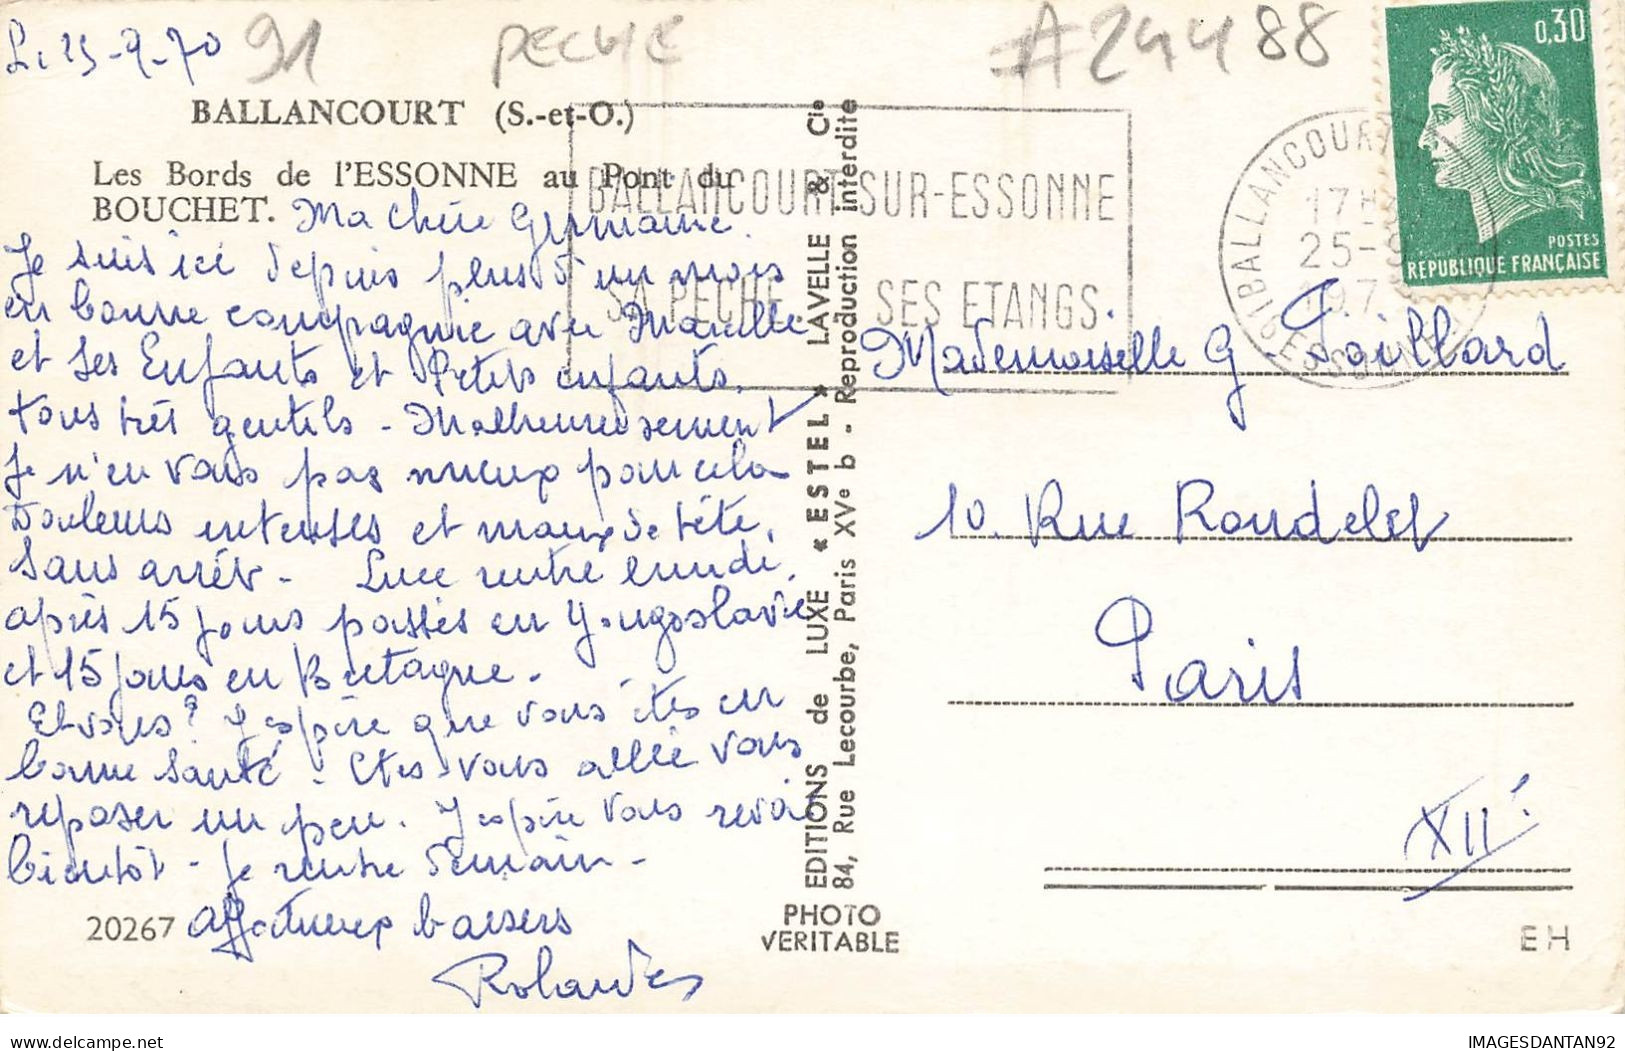 Le 25-9-70
91
PECHE
A24488
0,30
POSTES
REPUBLIQUE FRANÇAISE
BALLANCOURT (S.-et-O.)
Les Bords de l'ESSONNE au Pont du
BOUCHET.
BALLANCOURT-SUR-ESSONNE
SA PECHE SES ETANGS
91 BALLANCOURT
17H
25-9
197
ESSONNE
Ma Chère Germaine.
Je suis ici depuis plus d'un mois
en bonne compagnie avec
et ses Enfants et Petits enfants,
tous très gentils - Malheureusement
Je n'en vais pas mieux pour cela
Douleurs intenses et maux de tête,
sans arrêt - Luce rentre lundi,
après 15 jours passés en Yougoslavie
et 15 jours en Bretagne.
Et vous? J'espère que vous êtes en
bonne santé - Etes-vous allée vous
reposer un peu. J'espère vous revoir
bientôt - Je rentre demain -
Affectueux baisers
EDITIONS de LUXE « ESTEL » LAVELLE & Cie
84, Rue Lecourbe, Paris XVe b - Reproduction interdite
Mademoiselle G
10. Rue Rondelet
Paris
XIIe
20267
PHOTO
VERITABLE
EH
©DELCAMPE.net
IMAGESDANTAN92